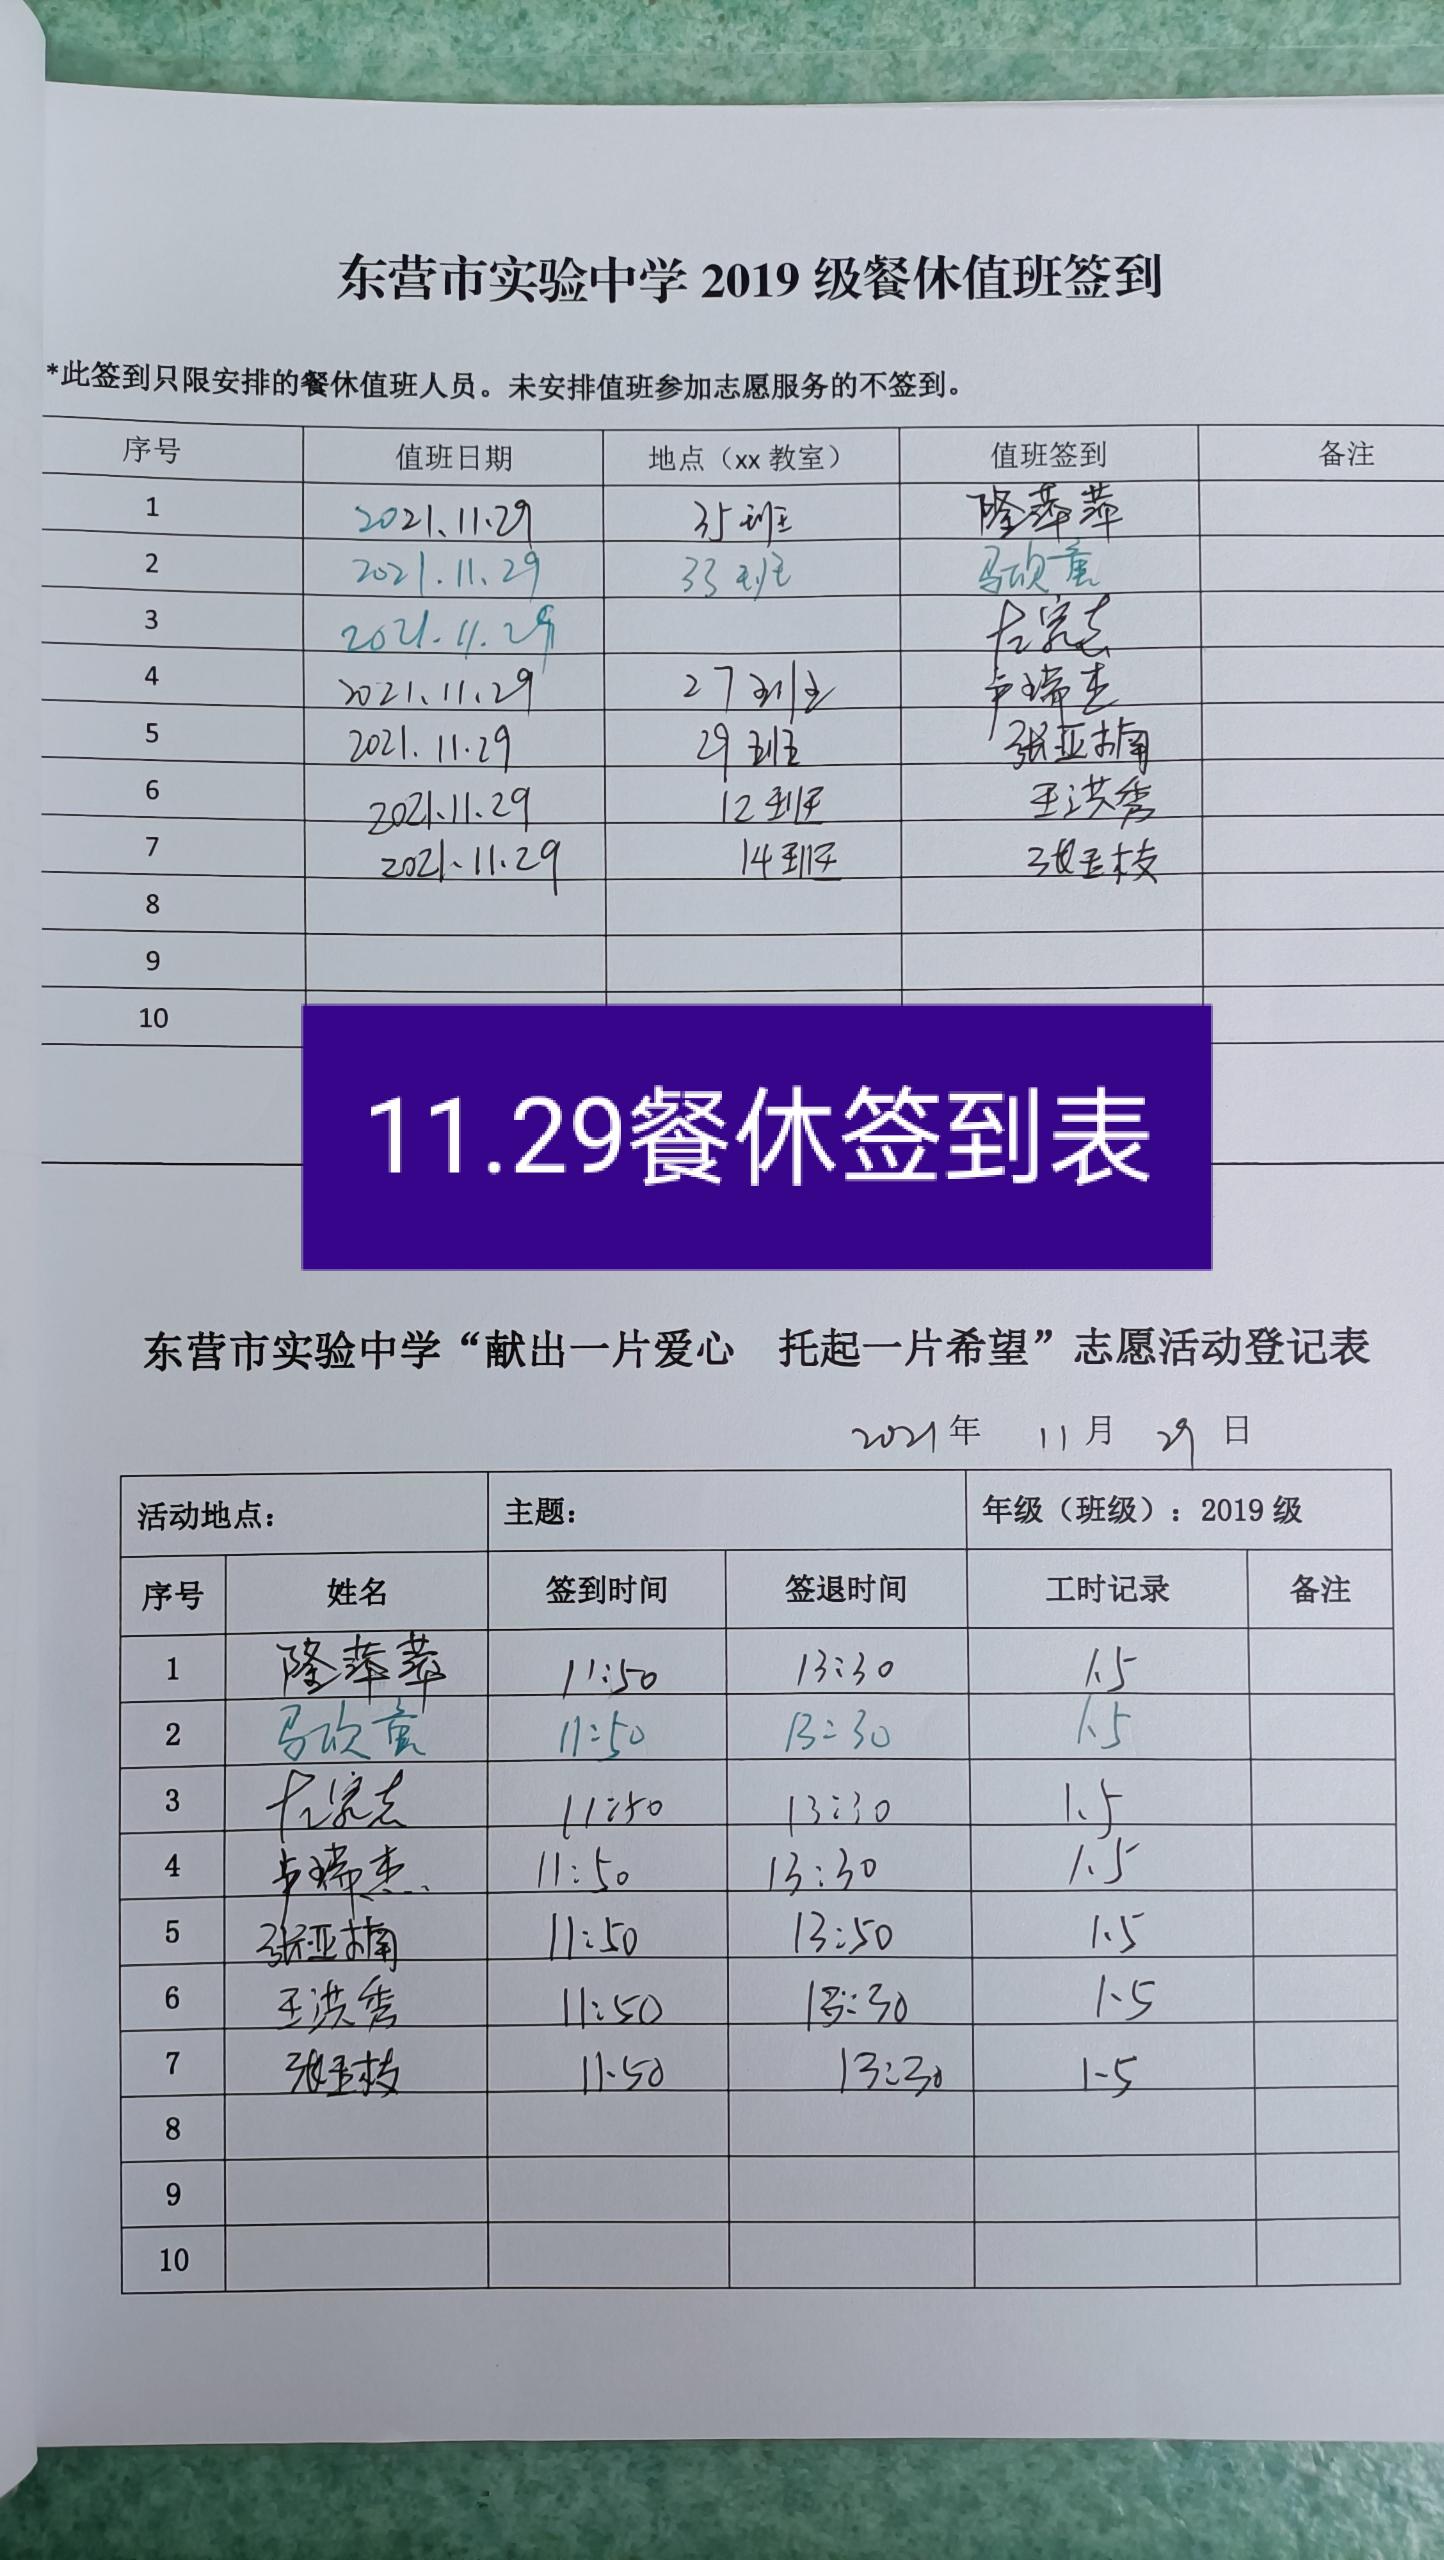 东营市实验中学 2019 级餐休值班签到
*此签到只限安排的餐休值班人员。未安排值班参加志愿服务的不签到。
序号 值班日期 地点（xx 教室） 值班签到 备注
1 2021.11.29 35班 隆萍萍
2 2021.11.29 33班
3 2021.11.29
4 2021.11.29 27班 卢瑞杰
5 2021.11.29 29班 张亚楠
6 2021.11.29 12班 王洪秀
7 2021.11.29 14班 张玉枝
8
9
10
11.29餐休签到表
东营市实验中学“献出一片爱心 托起一片希望”志愿活动登记表
2021年 11月 29日
活动地点： 主题： 年级（班级）：2019 级
序号 姓名 签到时间 签退时间 工时记录 备注
1 隆萍萍 11:50 13:30 1.5
2 11:50 13:30 1.5
3 11:50 13:30 1.5
4 卢瑞杰 11:50 13:30 1.5
5 张亚楠 11:50 13:50 1.5
6 王洪秀 11:50 13:30 1.5
7 张玉枝 11.50 13:30 1.5
8
9
10